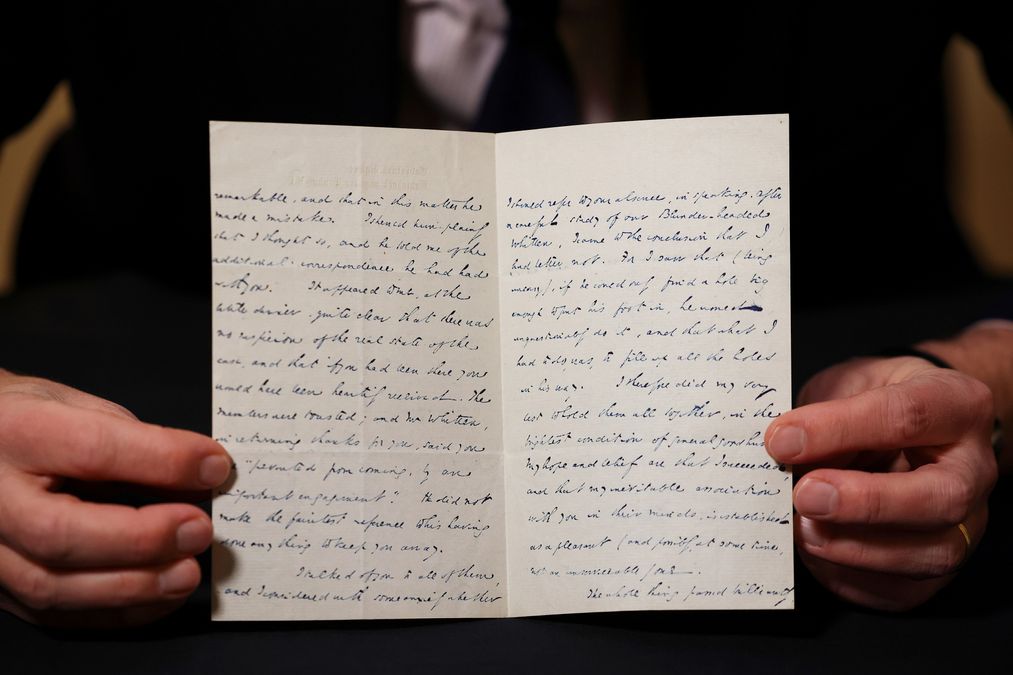 remarkable, and that in this matter he
made a mistake. I shewed him plainly
that I thought so, and he told me of the
additional correspondence he had had
with you. It appeared that, at the
little dinner, quite clear that there was
no suspicion of the real state of the
case, and that if you had been there you
would have been heartily received. The
members were toasted; and Mr Whitten,
in returning thanks for you, said you
were "prevented from coming, by an
important engagement". He did not
make the faintest reference to his having
done any thing to keep you away.
I talked of you to all of them,
and I considered with some anxiety whether
I should refer to your absence, in speaking. After
a careful study of our Blunder-headed
Whitten, I came to the conclusion that I
had better not. For I saw that (being
uneasy), if he could only find a hole big
enough to put his foot in, he would
unquestionably do it, and that what I
had to do, was, to fill up all the holes
in his way. I therefore did my very
best to hold them all together, in the
brightest condition of general good humour
My hope and belief are that I succeeded
and that my inevitable association
with you in their minds, is established
as a pleasant (and possibly, at some time,
not an unserviceable) one.
The whole thing passed brilliantly